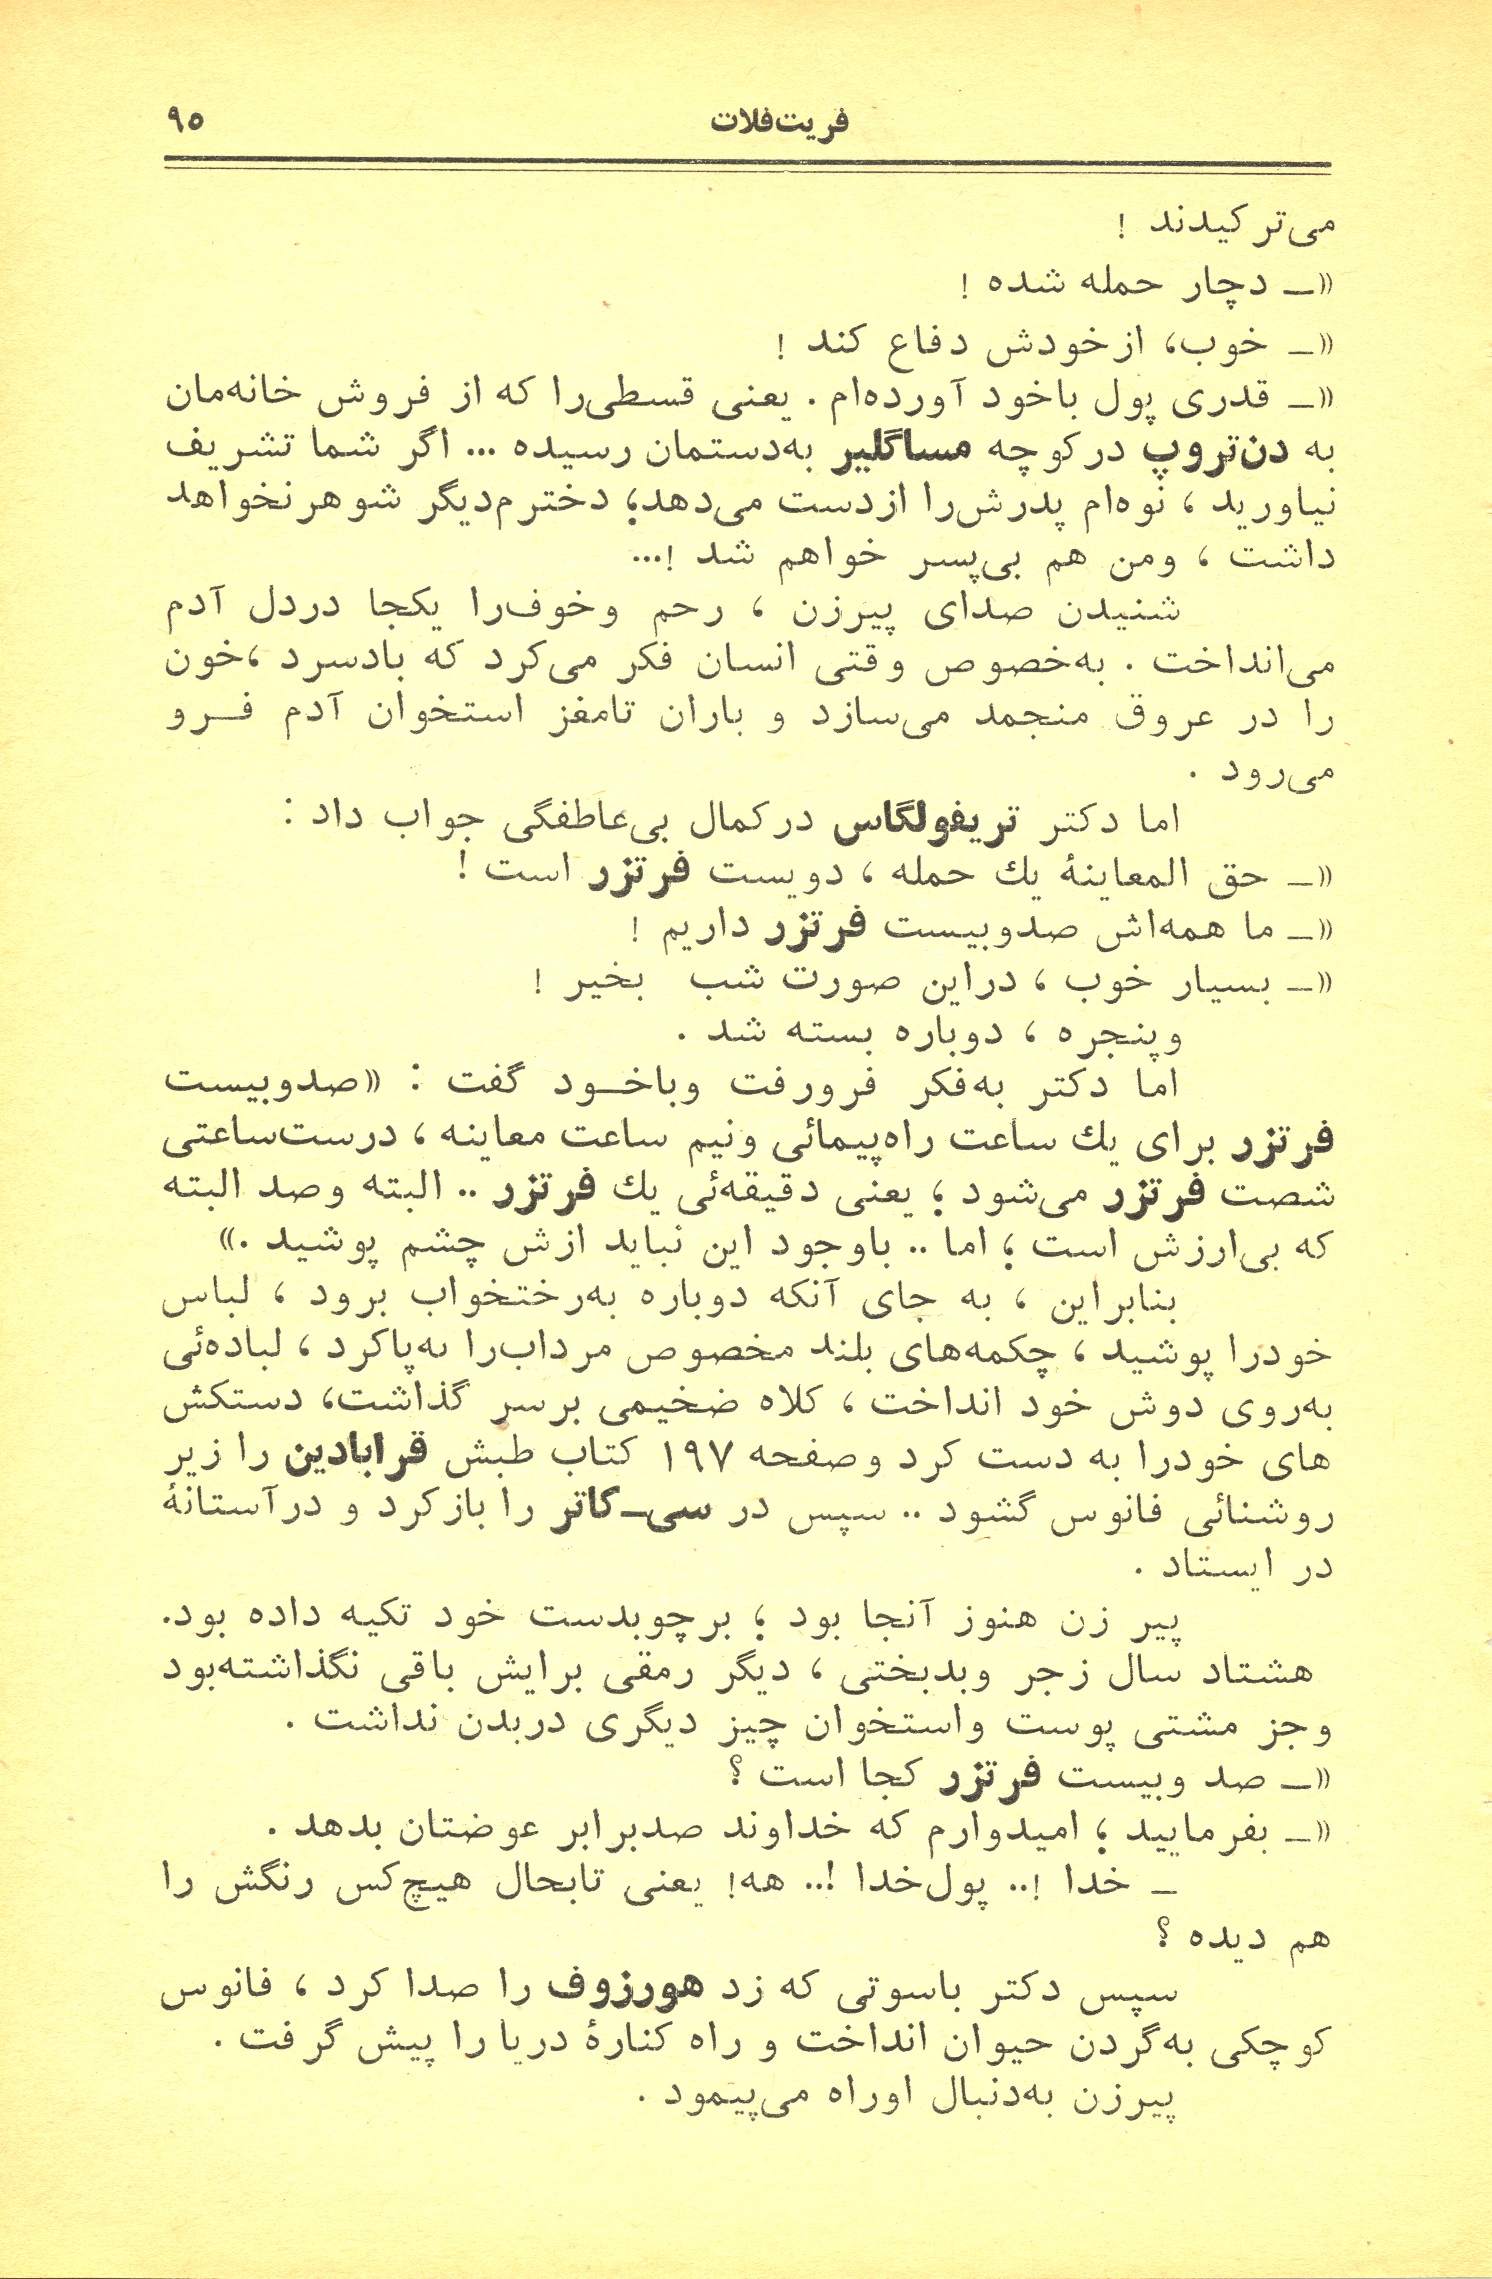 فریت‌فلات
۹۵
می‌ترکیدند !
«ــ دچار حمله شده !
«ــ خوب، ازخودش دفاع کند !
«ــ قدری پول باخود آورده‌ام . یعنی قسطی‌را که از فروش خانه‌مان
به دن‌تروپ درکوچه مساگلیر به‌دستمان رسیده ... اگر شما تشریف
نیاورید ، نوه‌ام پدرش‌را ازدست می‌دهد؛ دخترم‌دیگر شوهرنخواهد
داشت ، ومن هم بی‌پسر خواهم شد !...
شنیدن صدای پیرزن ، رحم وخوف‌را یکجا دردل آدم
می‌انداخت . به‌خصوص وقتی انسان فکر می‌کرد که بادسرد ،خون
را در عروق منجمد می‌سازد و باران تامغز استخوان آدم فــرو
می‌رود .
اما دکتر تریفولگاس درکمال بی‌عاطفگی جواب داد :
«ــ حق المعاینۀ یك حمله ، دویست فرتزر است !
«ــ ما همه‌اش صدوبیست فرتزر داریم !
«ــ بسیار خوب ، دراین صورت شب بخیر !
وپنجره ، دوباره بسته شد .
اما دکتر به‌فکر فرورفت وباخــود گفت : «صدوبیست
فرتزر برای یك ساعت راه‌پیمائی ونیم ساعت معاینه ، درست‌ساعتی
شصت فرتزر می‌شود ؛ یعنی دقیقه‌ئی یك فرتزر .. البته وصد البته
که بی‌ارزش است ؛ اما .. باوجود این نباید ازش چشم پوشید .»
بنابراین ، به جای آنکه دوباره به‌رختخواب برود ، لباس
خودرا پوشید ، چکمه‌های بلند مخصوص مرداب‌را به‌پاکرد ، لباده‌ئی
به‌روی دوش خود انداخت ، کلاه ضخیمی برسر گذاشت، دستکش
های خودرا به دست کرد وصفحه ۱۹۷ کتاب طبش قرابادین را زیر
روشنائی فانوس گشود .. سپس در سی‌ــ‌کاتر را بازکرد و درآستانۀ
در ایستاد .
پیر زن هنوز آنجا بود ؛ برچوبدست خود تکیه داده بود.
هشتاد سال زجر وبدبختی ، دیگر رمقی برایش باقی نگذاشته‌بود
وجز مشتی پوست واستخوان چیز دیگری دربدن نداشت .
«ــ صد وبیست فرتزر کجا است ؟
«ــ بفرمایید ؛ امیدوارم که خداوند صدبرابر عوضتان بدهد .
ــ خدا !.. پول‌خدا !.. هه! یعنی تابحال هیچ‌کس رنگش را
هم دیده ؟
سپس دکتر باسوتی که زد هورزوف را صدا کرد ، فانوس
کوچکی به‌گردن حیوان انداخت و راه کنارۀ دریا را پیش گرفت .
پیرزن به‌دنبال اوراه می‌پیمود .